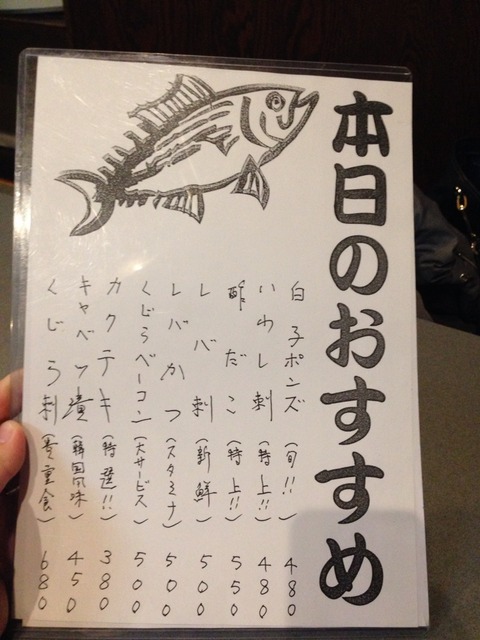 本日のおすすめ
白子ポンズ(旬!!)480
いわし刺(特上!!)480
酢だこ(特上!!)550
レバ刺(新鮮)500
レバかつ(スタミナ)500
くじらベーコン(大サービス)500
カクテキ(特選!!)380
キャベツ漬(韓国風味)450
くじら刺(貴重食)680